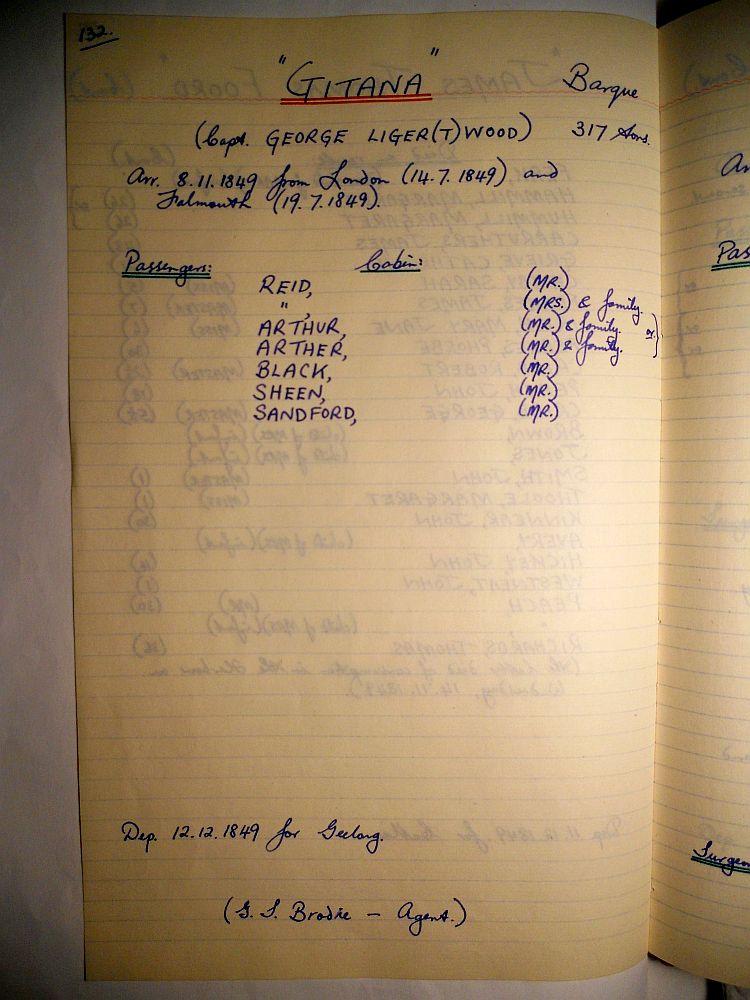 132.
"GITANA" Barque
(Capt. GEORGE LIGER(T)WOOD) 317 tons.
Arr. 8.11.1849 from London (14.7.1849) and
Falmouth (19.7.1849).
Passengers: Cabin:
REID, (MR.)
", (MRS.) & family.
ARTHUR, (MR.) & family. or }
ARTHER, (MR.) & family.
BLACK, (MR.)
SHEEN, (MR.)
SANDFORD, (MR.)
Dep. 12.12.1849 for Geelong.
(G. S. Brodie - Agent.)